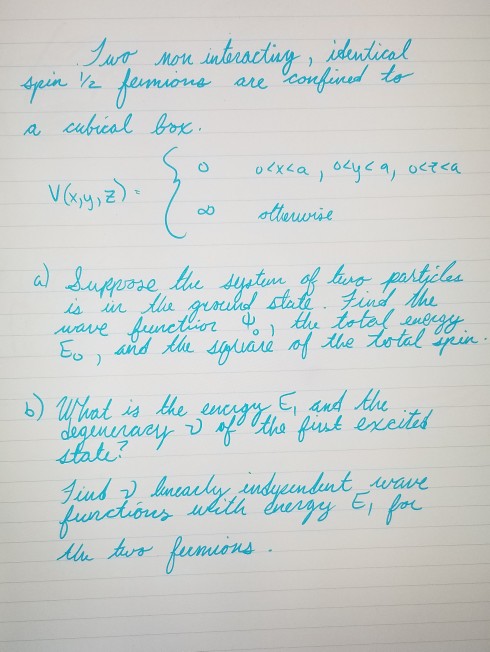 Two non interacting, identical
spin 1/2 fermions are confined to
a cubical box.
V(x,y,z) = { 0 0<x<a, 0<y<a, 0<z<a
∞ otherwise
a) Suppose the system of two particles
is in the ground state. Find the
wave function Ψ₀, the total energy
E₀, and the square of the total spin.
b) What is the energy E₁ and the
degeneracy ν of the first excited
state?
Find ν linearly independent wave
functions with energy E₁ for
the two fermions.